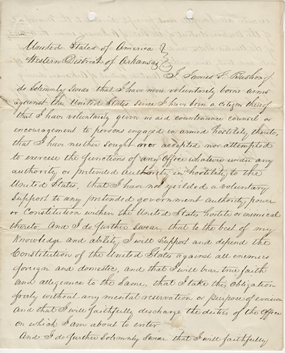 United States of America
Western District of Arkansas
I James S.
do Solemnly Swear that I have never voluntarily borne arms
against the United States since I have been a citizen thereof
that I have voluntarily given no aid countenance council or
encouragement to persons engaged in armed hostility thereto,
that I have neither sought nor accepted nor attempted
to exercise the functions of any Office whatever under any
authority or pretended authority in hostility to the
United States, that I have not yielded a voluntary
support to any pretended government authority power
or Constitution within the United States hostile or inimical
thereto. And I do further swear, that to the best of my
Knowledge and ability I will Support and defend the
Constitution of the United States against all enemies
foreign and domestic, and that I will bear true faith
and allegiance to the Same, that I take this obligation
freely without any mental reservation or purpose of evasion
And that I will faithfully discharge the duties of the Office
on which I am about to enter.
And I do further Solemnly Swear that I will faithfully